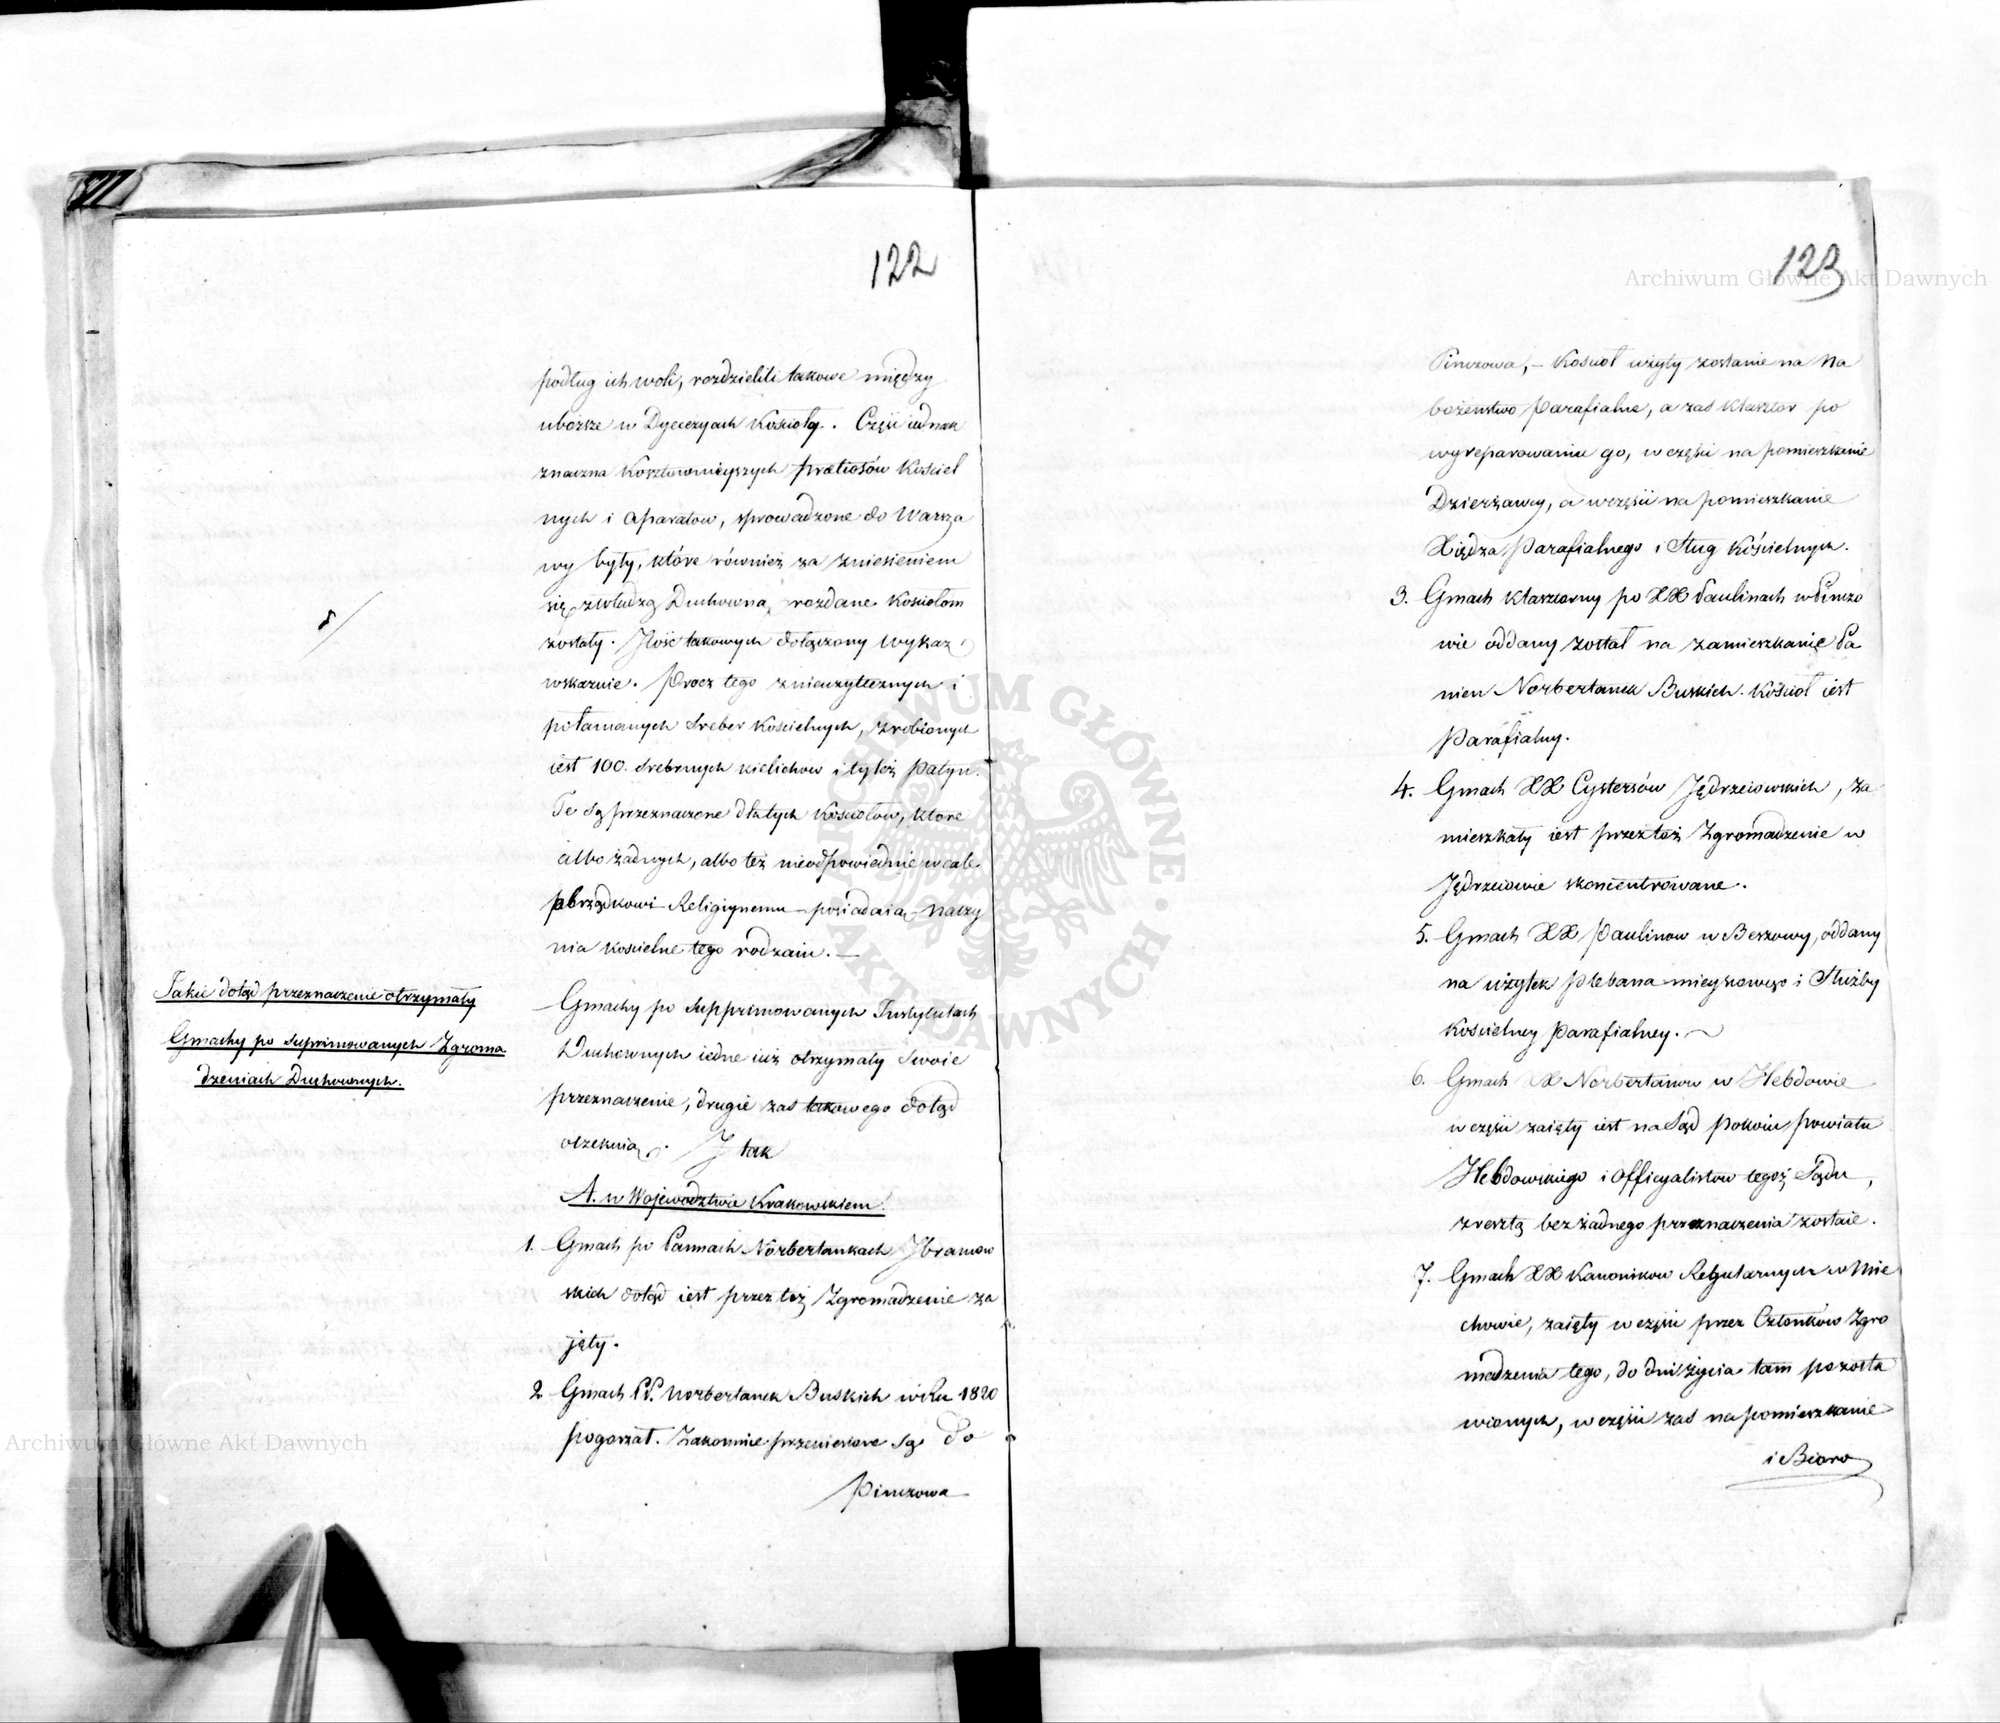 122
podług ich woli, rozdzielili takowe między
uboższe w Dyecezyach Kościoły. Część iednak
znaczna Kosztownieyszych pretiosów Kościel
nych i Aparatow, sprowadzone do Warsza
wy były, które również za zniesieniem
się z Władzą Duchowną, rozdane Kosciołom
zostały. Ilość takowych dołączony Wykaz
wskaznie. Procz tego z nieużytecznych i
połamanych Sreber Kościelnych, zrobionych
iest 100. Srebrnych kielichow i tyleż Patyn.
Te są przeznaczone dla tych Kosciołow, ktore
albo żadnych, albo też nieodpowiednie wcale
obrządkowi Religiynemu posiadaią naczy
nia koscielne tego rodzaiu. —
Takie dotąd przeznaczenie otrzymały
Gmachy po Suprimowanych Zgroma
dzeniach Duchownych.
Gmachy po Supprimowanych Instytutach
Duchownych iedne iuż otrzymały Swoie
przeznaczenie, drugie zas takowego dotąd
oczekuią. I tak
A. w Województwie Krakowskiem.
1. Gmach po Pannach Norbertankach Ibramow
skich dotąd iest przez też Zgromadzenie za
jęty.
2 Gmach PP. Norbertanek Buskich w Ru 1820
pogorzał. Zakonnice przeniesione są do
Pinczowa
123
Pinczowa, – Koscioł użyty zostanie na Na
bożenstwo Parafialne, a zas Klasztor po
wyreparowaniu go, w części na pomieszkanie
Dzierżawcy, a w części na pomieszkanie
Xiędza Parafialnego i Sług Kościelnych.
3. Gmach Klasztorny po XX Paulinach w Pinczo
wie oddany został na zamieszkanie Pa
nien Norbertanek Buskich. Kościoł iest
Parafialny.
4. Gmach XX Cystersów Jędrzeiowskich, za
mieszkały iest przez też Zgromadzenie w
Jędrzeiowie skoncentrowane.
5. Gmach XX Paulinow w Beszowy, oddany
na użytek Plebana mieyscowego i Służby
Koscielney Parafialney.
6. Gmach XX Norbertanow w Hebdowie
w części zaięty iest na Sąd Pokoiu Powiatu
Hebdowskiego i Officyalistow tegoż Sądu,
zresztą bez żadnego przeznaczenia zostaie.
7. Gmach XX Kanonikow Regularnych w Mie
chowie, zaięty w części przez Członków Zgro
madzenia tego, do dni życia tam pozosta
wionych, w części zas na pomieszkanie
i Bióro
Archiwum Główne Akt Dawnych
Archiwum Główne Akt Dawnych
ARCHIWUM GŁÓWNE AKT DAWNYCH